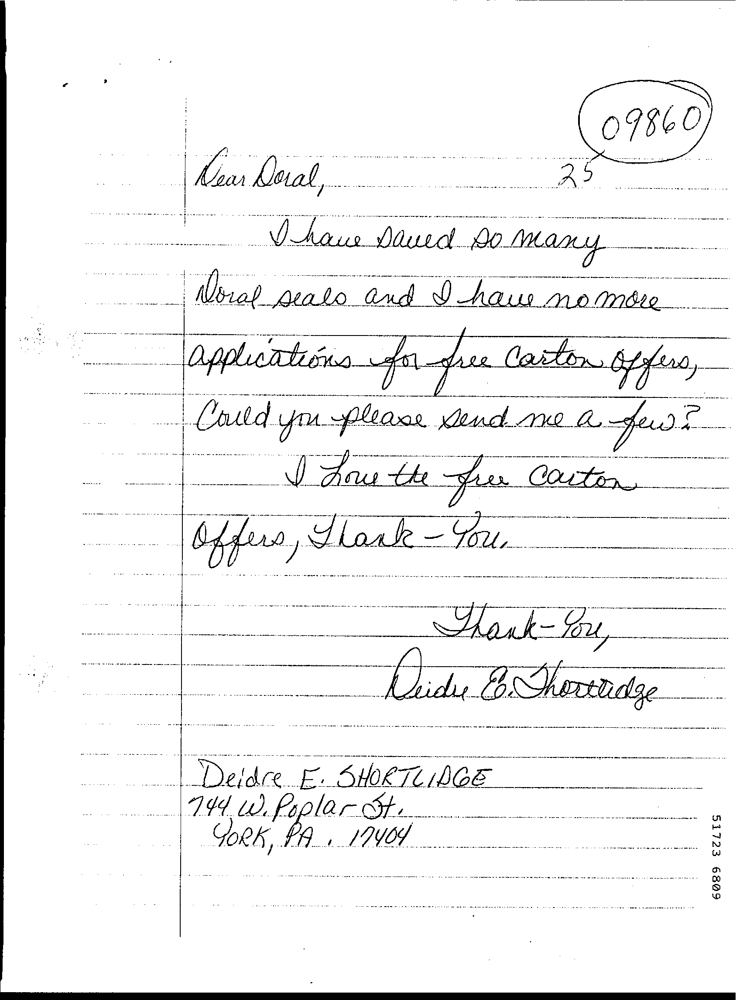 09860
25
Dear Doral,
I have saved so many
Doral seals and I have no more
applications for free Carton Offers,
Could you please send me a few?
I Love the free Carton
Offers, Thank-You.
Thank-You,
Deidre E. Shortlidge
Deidre E. SHORTLIDGE
744 W. Poplar St.
YORK, PA. 17404
51723 6809